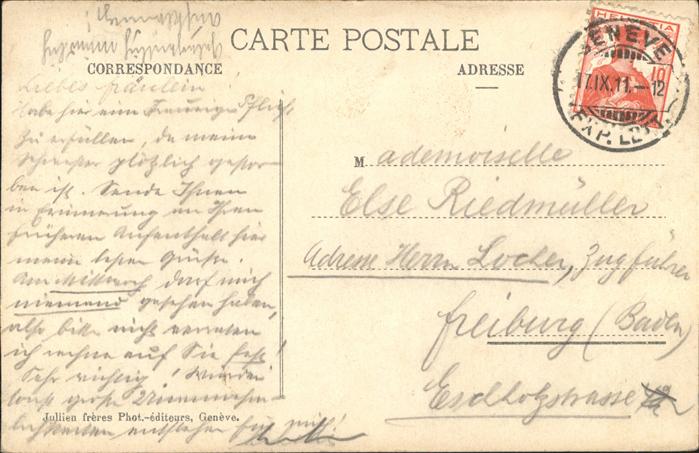 CARTE POSTALE
CORRESPONDANCE
ADRESSE
HELVETIA
10
GENÈVE
17.IX.11.–12
EXP. LETT.
Liebes Fräulein!
Habe hier eine traurige Pflicht
zu erfüllen, da meine
Schwester plötzlich gestor-
ben ist. Sende Ihnen
in Erinnerung an Ihren
früheren Aufenthalt hier
meine besten Grüße.
Am Mittwoch darf mich
niemand gesehen haben,
also bitte nicht verraten
ich rechne auf Sie fest!
Sehr wichtig! Würden
sonst große Unannehm-
lichkeiten entstehen für mich!
Mademoiselle
Else Riedmüller
Adresse Herrn Locher, Zugführer
Freiburg (Baden)
Escholzstrasse
Jullien frères Phot.-éditeurs, Genève.